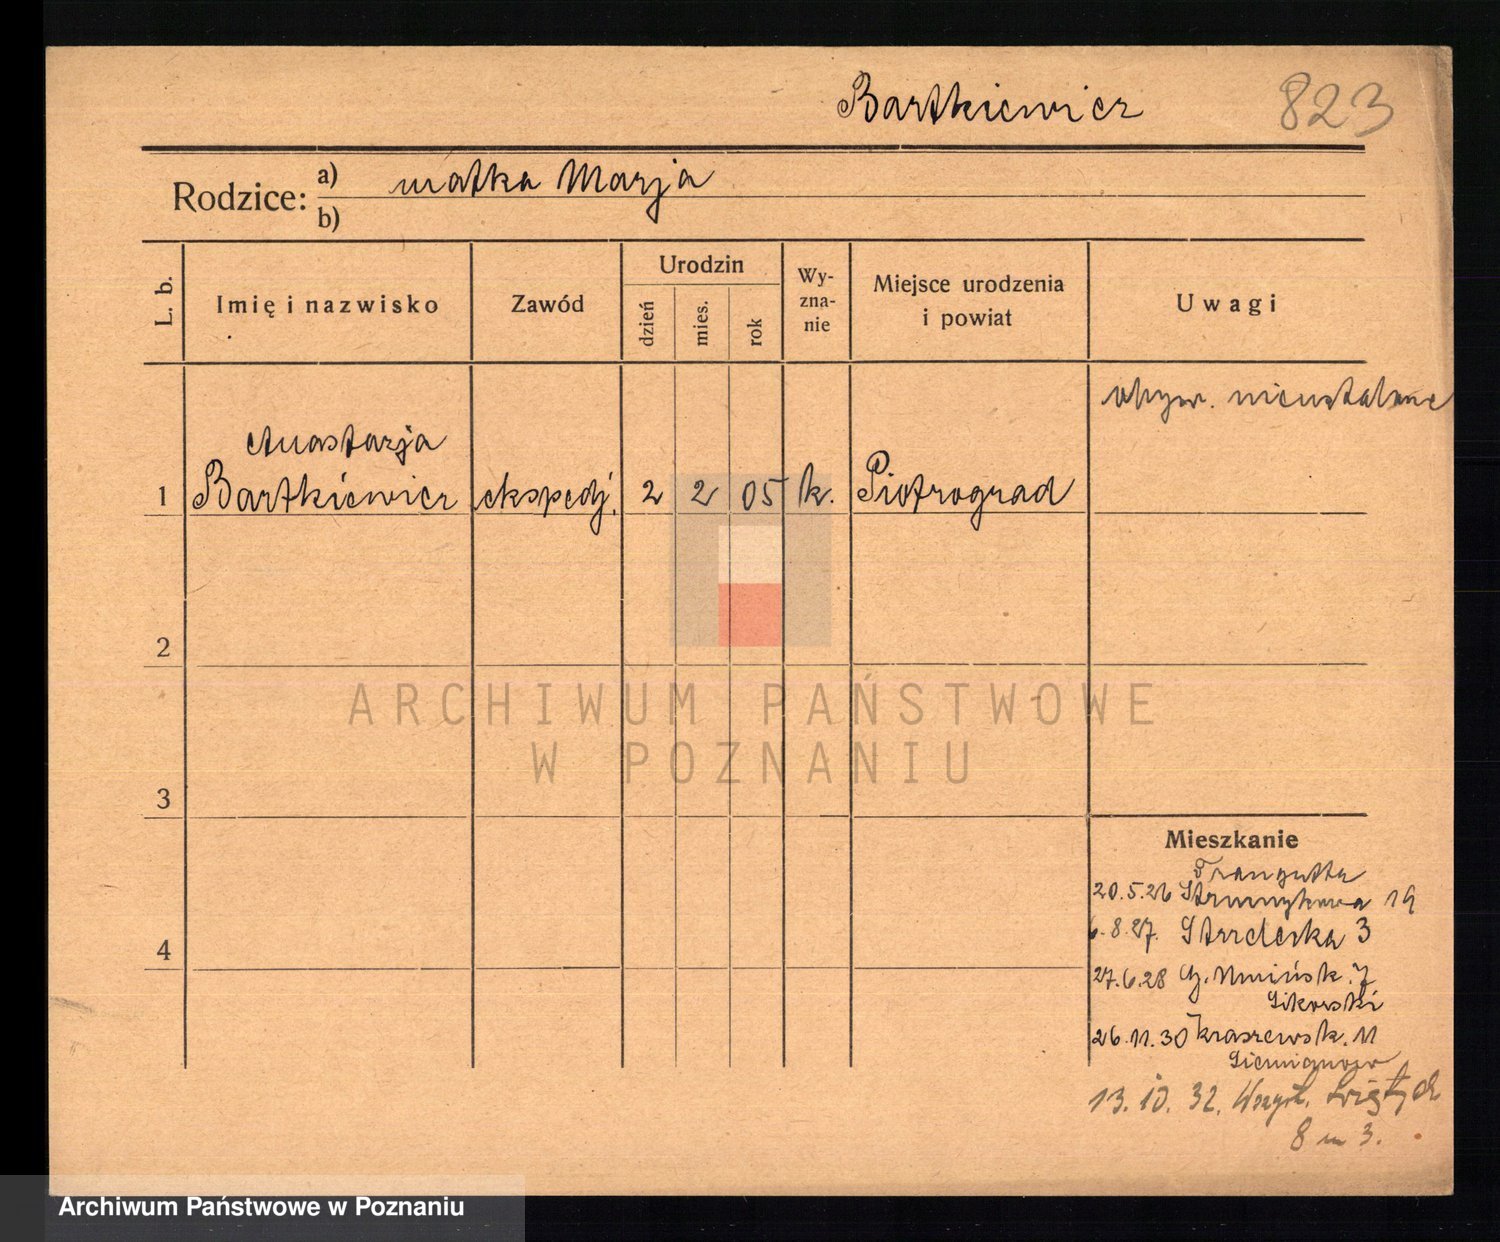 Bartkiewicz 823
Rodzice: a) matka Marja
b)
L. b.
Imię i nazwisko
Zawód
Urodzin
dzień
mies.
rok
Wy-
zna-
nie
Miejsce urodzenia
i powiat
Uwagi
obyw. nieustalone
Anastazja
1 Bartkiewicz ekspedj. 2 2 05 k. Piotrograd
2
3
4
Mieszkanie
20.5.26 19
6.8.27. Strzelecka 3
27.6.28 7
Sikorski
26.11.30 Kraszewsk. 11
13.10.32. Wszyst. Świętych
8 m 3.
ARCHIWUM PAŃSTWOWE
W POZNANIU
Archiwum Państwowe w Poznaniu